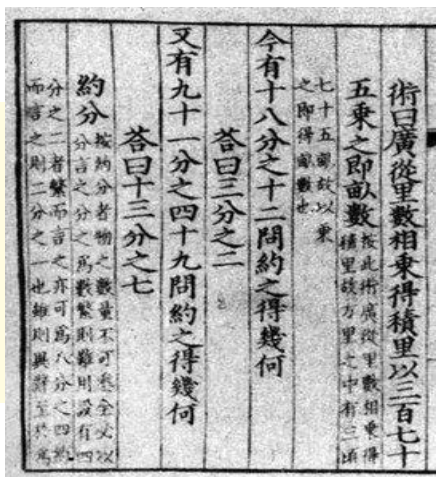 術曰廣從里數相乘得積里以三百七十
五乘之即畝數
按此術廣從里數相乘得
積里故方里之中有三頃
七十五畝故以乘
之即得畝數也
今有十八分之十二問約之得幾何
荅曰三分之二
又有九十一分之四十九問約之得幾何
荅曰十三分之七
約分
按約分者物之數量不可悉全必以
分言之分之為數繁則難用設有四
分之二者繁而言之亦可為八分之四約
而言之則二分之一也雖則異辭至於為